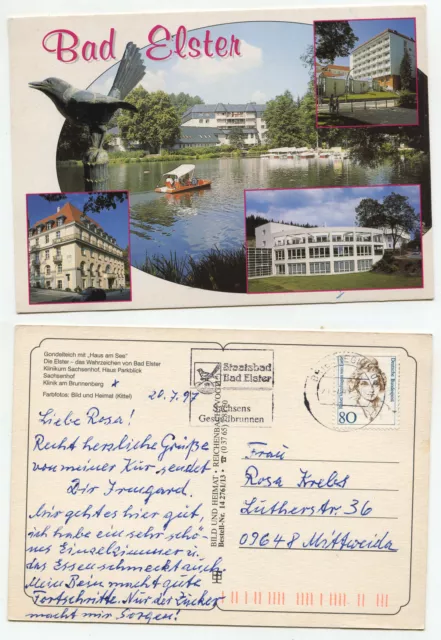 Bad Elster
Gondelteich mit „Haus am See"
Die Elster - das Wehrzeichen von Bad Elster
Klinikum Sachsenhof, Haus Parkblick
Sachsenhof
Klinik am Brunnenberg x
Farbfotos: Bild und Heimat (Kittel)
20.7.97
Liebe Rosa!
Recht herzliche Grüße
von meiner Kur sendet
Dir Irmgard.
Mir geht es hier gut,
ich habe ein sehr schö-
nes Einzelzimmer u.
das Essen schmeckt auch.
Mein Bein macht gute
Fortschritte. Nur der Zucker
macht mir Sorgen!
BILD UND HEIMAT · REICHENBACH
Bestell-Nr. 14 2761/13
Staatsbad
Bad Elster
Sachsens
Gesundbrunnen
Deutsche Bundespost
80
Frau
Rosa Krebs
Lutherstr. 36
09648 Mittweida